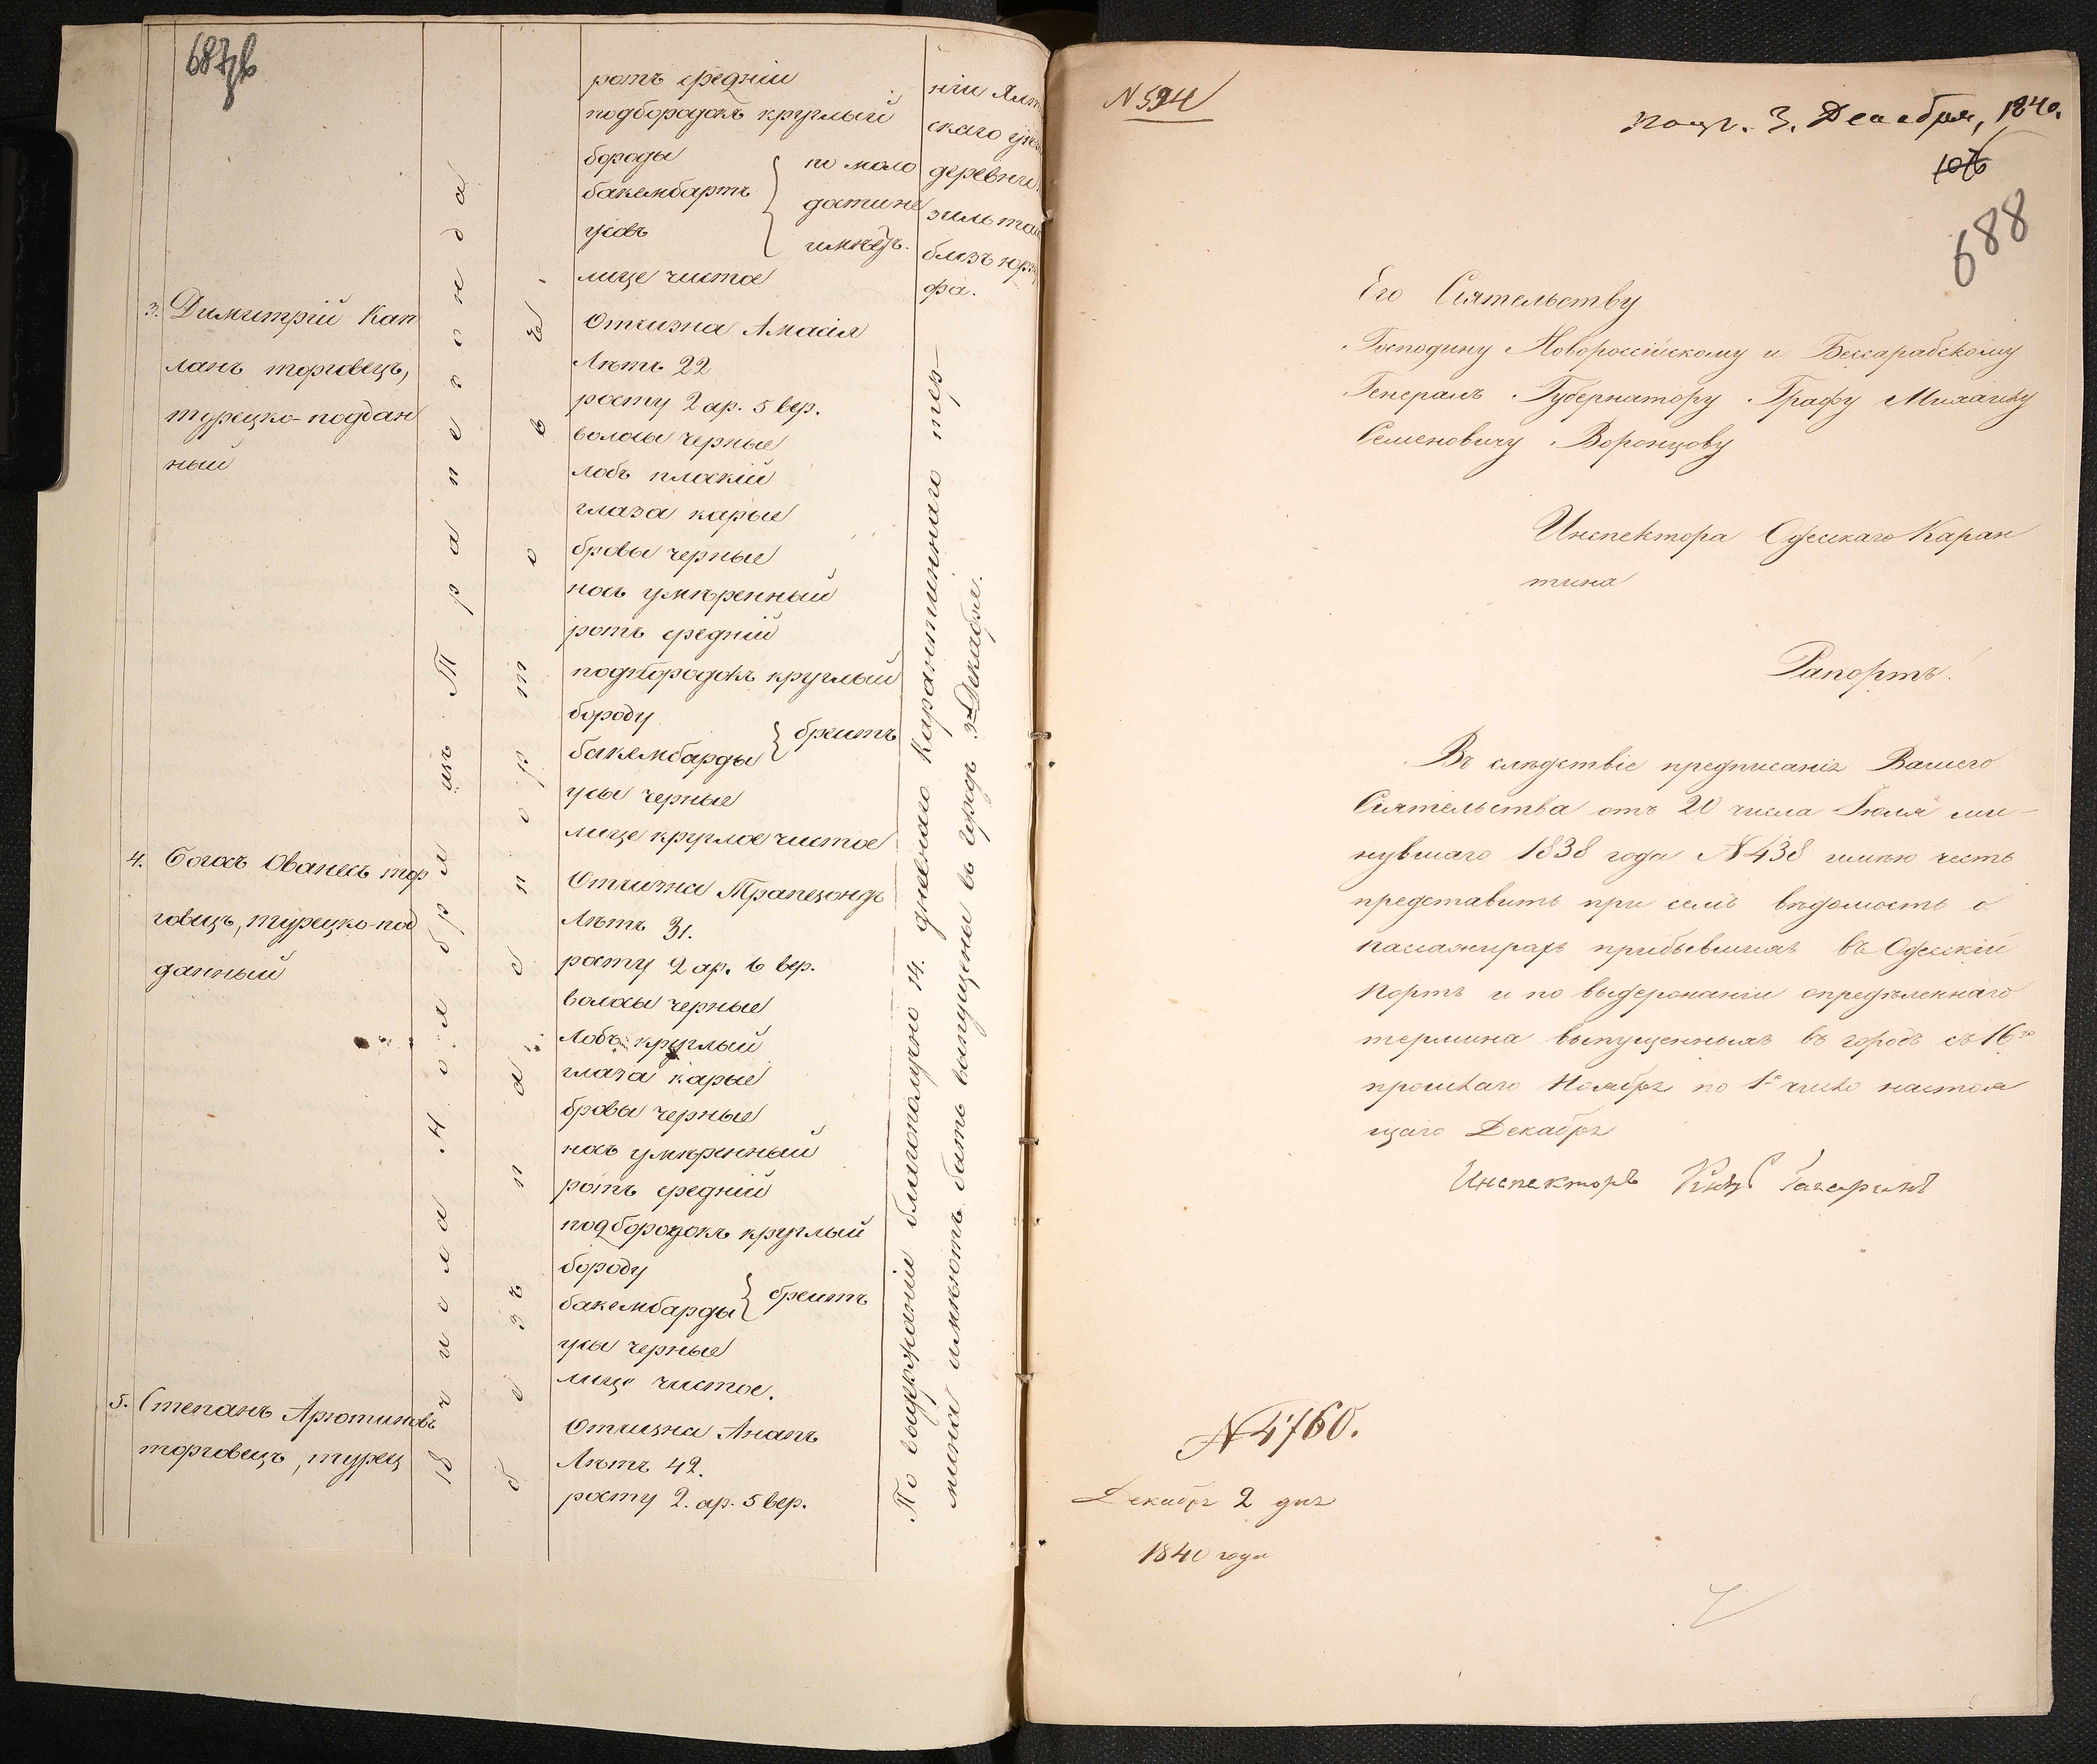 687об
ротъ средній
подбородокъ круглый
бороды
бакембартъ
усовъ
по моло
дости не
имѣетъ.
лице чистое
ніи Ялт
скаго уѣз
деревни
зильташ
близъ Юрзу
фа.
3. Димитрій Кап
ланъ торговецъ,
турецко-поддан
ный
Отчизна Амасія
Лѣтъ 22
росту 2 ар. 5 вер.
волосы черные
лобъ плоскій
глаза карые
бровы черные
носъ умѣренный
ротъ средній
подбородокъ круглый
бороду
бакембарды
бреитъ
усы черные
лице круглое чистое
4. Богосъ Ованесъ тор
говецъ, турецко-под
данный
Отчизна Трапезондъ
Лѣтъ 31.
росту 2 ар. 6 вер.
волосы черные
Лобъ круглый
глаза карые
бровы черные
носъ умѣренный
ротъ средній
подбородокъ круглый
бороду
бакембарды
бреитъ
усы черные
лице чистое.
5. Степанъ Арютиновъ
торговецъ, турец
Отчизна Анапъ
Лѣтъ 42.
росту 2. ар. 5 вер.
18 числа Ноября изъ Трапезонда
безъ паспортовъ.
По выдержаніи благополучно 14. дневнаго Карантиннаго тер-
мина имѣютъ быть выпущены въ городъ 3го Декабря.
N 594
Пол. 3. Декабря, 1840.
688
Его Сіятельству
Господину Новороссійскому и Бессарабскому
Генералъ Губернатору Графу Михаилу
Семеновичу Воронцову
Инспектора Одесскаго Каран
тина
Рапортъ.
Въ слѣдствіе предписанія Вашего
Сіятельства отъ 20 числа Іюля ми-
нувшаго 1838 года N 438 имѣю честь
представить при семъ вѣдомость о
пассажирахъ прибывшихъ въ Одесскій
Портъ и по выдержаніи опредѣленнаго
термина выпущенныхъ въ городъ съ 16го
прошлаго Ноября по 1е число настоя
щаго Декабря
Инспекторъ Князь Гагаринъ
N 4760.
Декабря 2 дня
1840 года